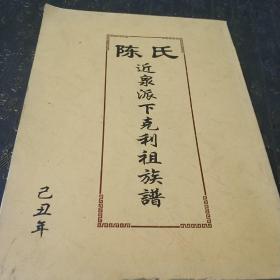 陈氏
近泉派下克利祖族譜
己丑年